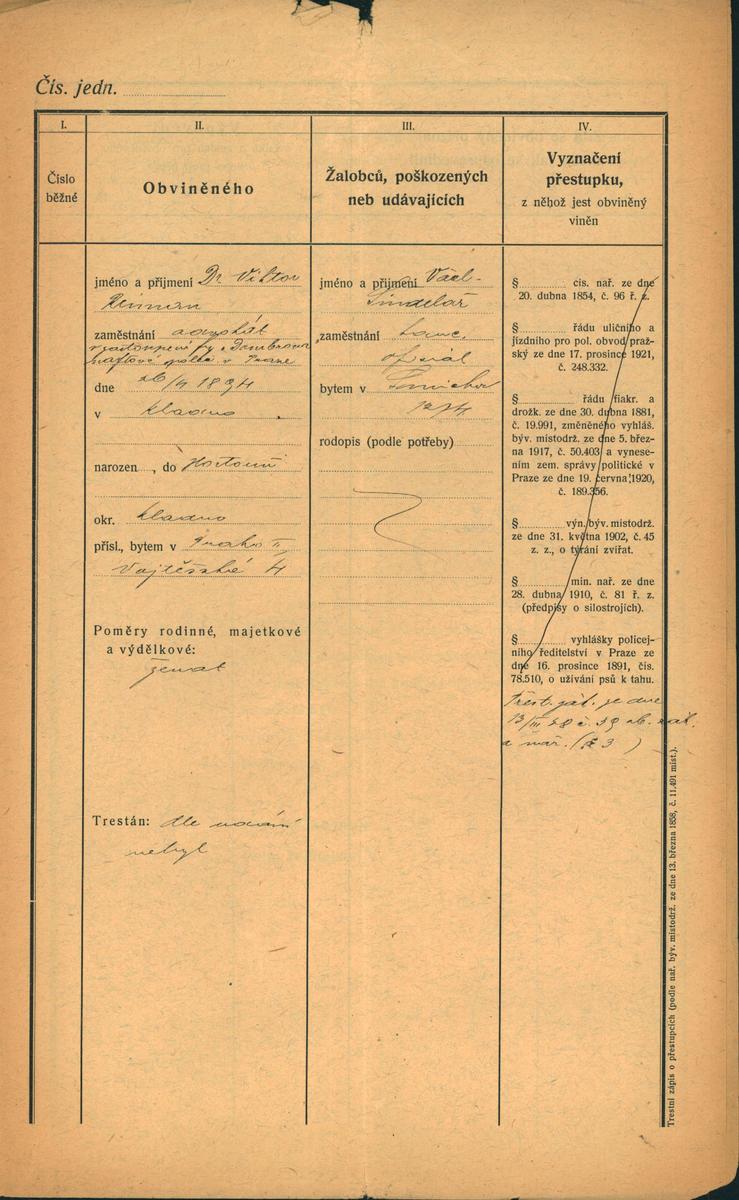 Čís. jedn.
I.
Číslo
běžné
II.
Obviněného
III.
Žalobců, poškozených
neb udávajících
IV.
Vyznačení
přestupku,
z něhož jest obviněný
viněn
jméno a přijmení Dr Viktor
zaměstnání advokát
v zastoupení fy
naftové v Praze
dne 26/4 1894
v Kladno
narozen , do Hostouň
okr. Kladno
přísl., bytem v Praha II
Vojtěšská 4
Poměry rodinné, majetkové
a výdělkové:
ženat
Trestán: dle udání
nebyl
jméno a přijmení Václ.
Šindelář
zaměstnání kanc.
oficiál
bytem v Smíchov
rodopis (podle potřeby)
§ cis. nař. ze dne
20. dubna 1854, č. 96 ř. z.
§ řádu uličního a
jízdního pro pol. obvod praž-
ský ze dne 17. prosince 1921,
č. 248.332.
§ řádu fiakr. a
drožk. ze dne 30. dubna 1881,
č. 19.991, změněného vyhláš.
býv. místodrž. ze dne 5. břez-
na 1917, č. 50.403 a vynese-
ním zem. správy politické v
Praze ze dne 19. června 1920,
č. 189.356.
§ výn. býv. místodrž.
ze dne 31. května 1902, č. 45
z. z., o týrání zvířat.
§ min. nař. ze dne
28. dubna 1910, č. 81 ř. z.
(předpisy o silostrojích).
§ vyhlášky policej-
ního ředitelství v Praze ze
dne 16. prosince 1891, čís.
78.510, o užívání psů k tahu.
ze dne
13/III č. 39 sb. zák.
a nař. (§ 3 )
Trestní zápis o přestupcích (podle nař. býv. místodrž. ze dne 13. března 1858, č. 11.491 míst.).